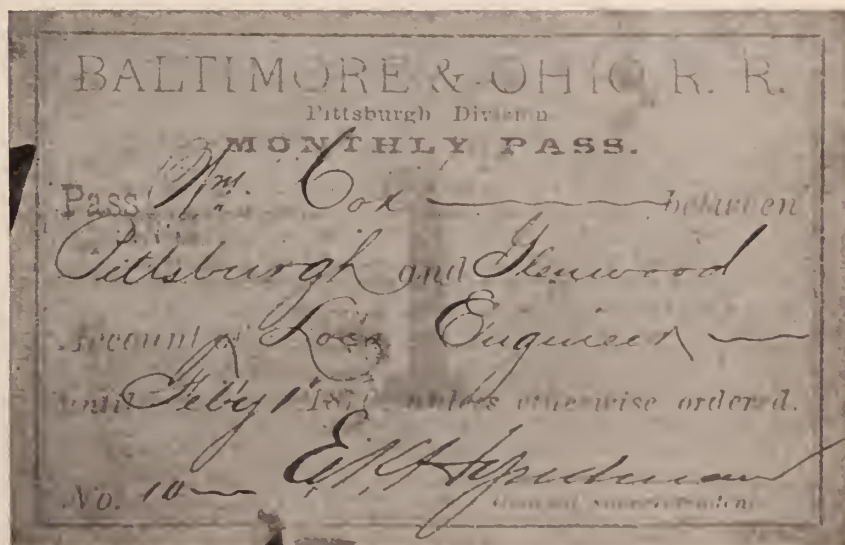 BALTIMORE & OHIO R. R.
Pittsburgh Division
MONTHLY PASS.
Pass Wm. Cox between
Pittsburgh and Glenwood
Account of Loco. Engineer
until Feby 1st 187 unless otherwise ordered.
No. 10
General Superintendent